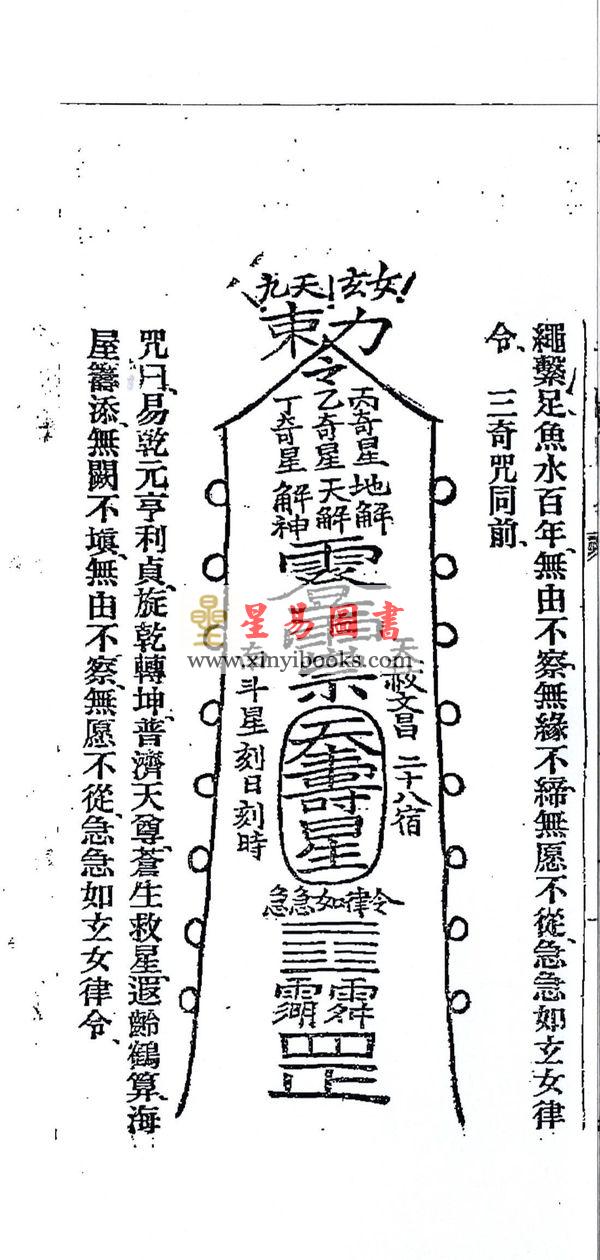 繩繫足、魚水百年、無由不察、無緣不締、無愿不從、急急如玄女律
令、 三奇咒同前、
九天玄女
敕力
令
丙奇星 地解
乙奇星 天解
丁奇星 解神
天赦文昌 二十八宿
斗星刻日刻時
天壽星
急急如律令
咒曰、易乾元亨利貞、旋乾轉坤、普濟天尊、蒼生救星、遐齡鶴算、海
屋籌添、無闕不填、無由不察、無愿不從、急急如玄女律令、
星易圖書
www.xinyibooks.com